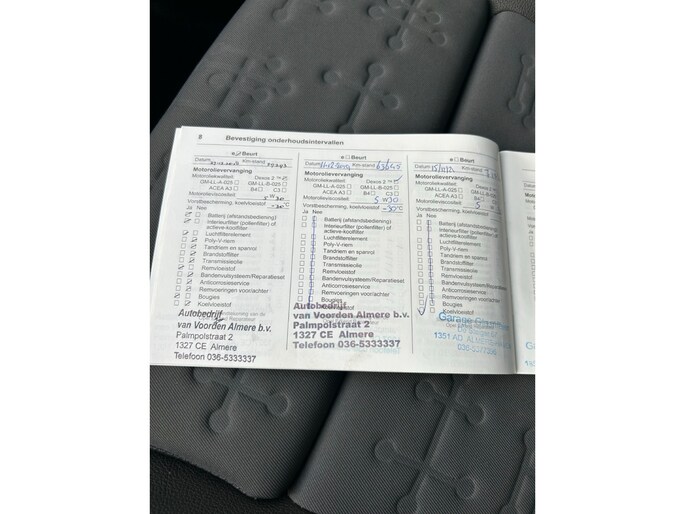 8 Bevestiging onderhoudsintervallen
Beurt
Datum Km-stand
Motorolievervanging
Motoroliekwaliteit: Dexos 2
GM-LL-A-025 GM-LL-B-025
ACEA A3 B4 C3
Motorolieviscositeit: 5 W30
Vorstbescherming, koelvloeistof -30°C
Ja Nee
Batterij (afstandsbediening)
Interieurfilter (pollenfilter) of
actieve-koolfilter
Luchtfilterelement
Poly-V-riem
Tandriem en spanrol
Brandstoffilter
Transmissieolie
Remvloeistof
Bandenvulsysteem/Reparatieset
Anticorrosieservice
Remvoeringen voor/achter
Bougies
Koelvloeistof
Autobedrijf
van Voorden Almere b.v.
Palmpolstraat 2
1327 CE Almere
Telefoon 036-5333337
Beurt
Datum Km-stand 63645
Motorolievervanging
Motoroliekwaliteit: Dexos 2
GM-LL-A-025 GM-LL-B-025
ACEA A3 B4 C3
Motorolieviscositeit: 5 W30
Vorstbescherming, koelvloeistof -30°C
Ja Nee
Batterij (afstandsbediening)
Interieurfilter (pollenfilter) of
actieve-koolfilter
Luchtfilterelement
Poly-V-riem
Tandriem en spanrol
Brandstoffilter
Transmissieolie
Remvloeistof
Bandenvulsysteem/Reparatieset
Anticorrosieservice
Remvoeringen voor/achter
Bougies
Autobedrijf
van Voorden Almere b.v.
Palmpolstraat 2
1327 CE Almere
Telefoon 036-5333337
Beurt
Datum Km-stand
Motorolievervanging
Motoroliekwaliteit: Dexos 2
GM-LL-A-025 GM-LL-B-025
ACEA A3 B4 C3
Motorolieviscositeit: 5
Vorstbescherming, koelvloeistof
Ja Nee
Batterij (afstandsbediening)
Interieurfilter (pollenfilter) of
actieve-koolfilter
Luchtfilterelement
Poly-V-riem
Tandriem en spanrol
Brandstoffilter
Transmissieolie
Remvloeistof
Bandenvulsysteem/Reparatieset
Anticorrosieservice
Remvoeringen voor/achter
Bougies
Koelvloeistof
Garage
1351 AD